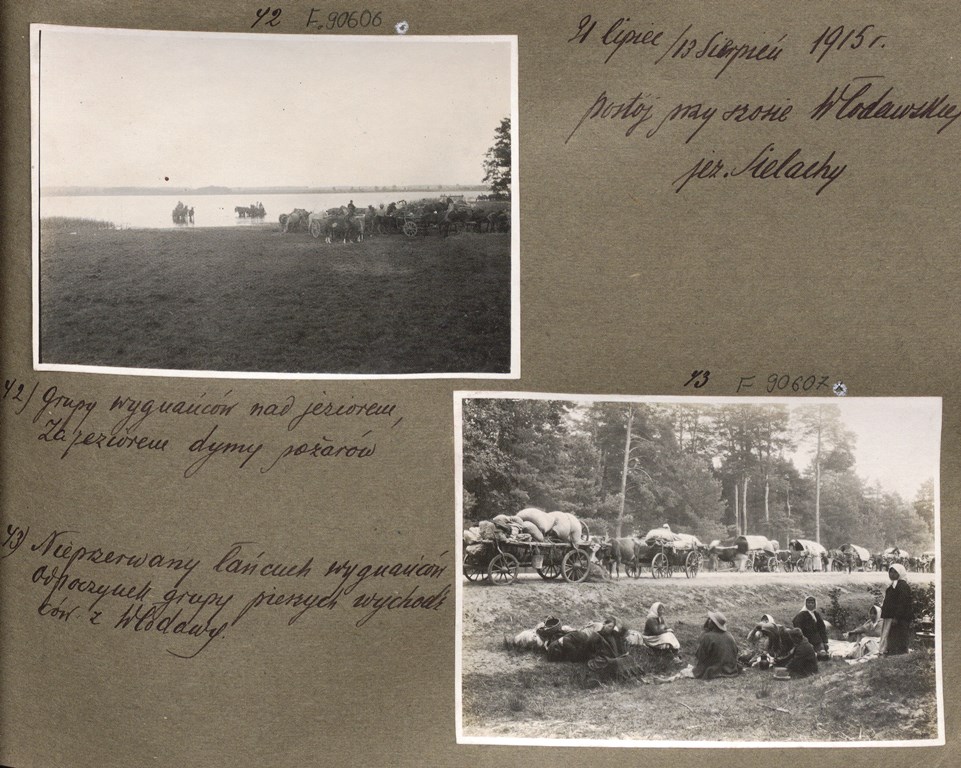 42 F. 90606
31 lipiec / 13 Sierpień 1915 r.
postój przy szosie Włodawskiej
jez. Sielachy
42) Grupy wygnańców nad jeziorem,
Za jeziorem dymy pożarów
43 F 90607
43) Nieprzerwany łańcuch wygnańców
Odpoczynek grupy pieszych wychodź
ców z Włodawy.